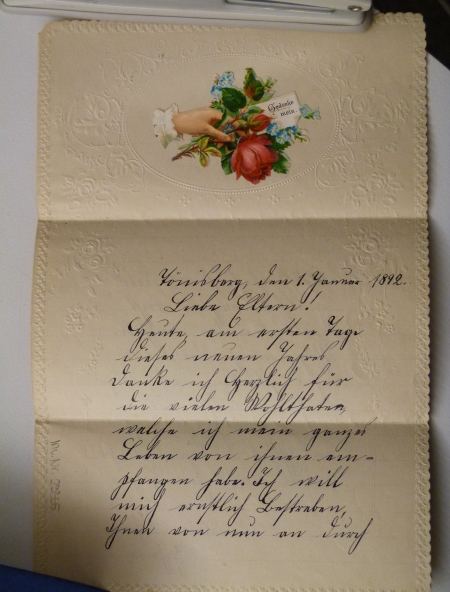 Gedenke
mein.
Tönisberg, den 1. Januar 1892.
Liebe Eltern!
Heute, am ersten Tage
dieses neuen Jahres
danke ich Herzlich für
die vielen Wohlthaten,
welche ich mein ganzes
Leben von ihnen em-
pfangen habe. Ich will
mich ernstlich Bestreben,
Ihnen von nun an durch